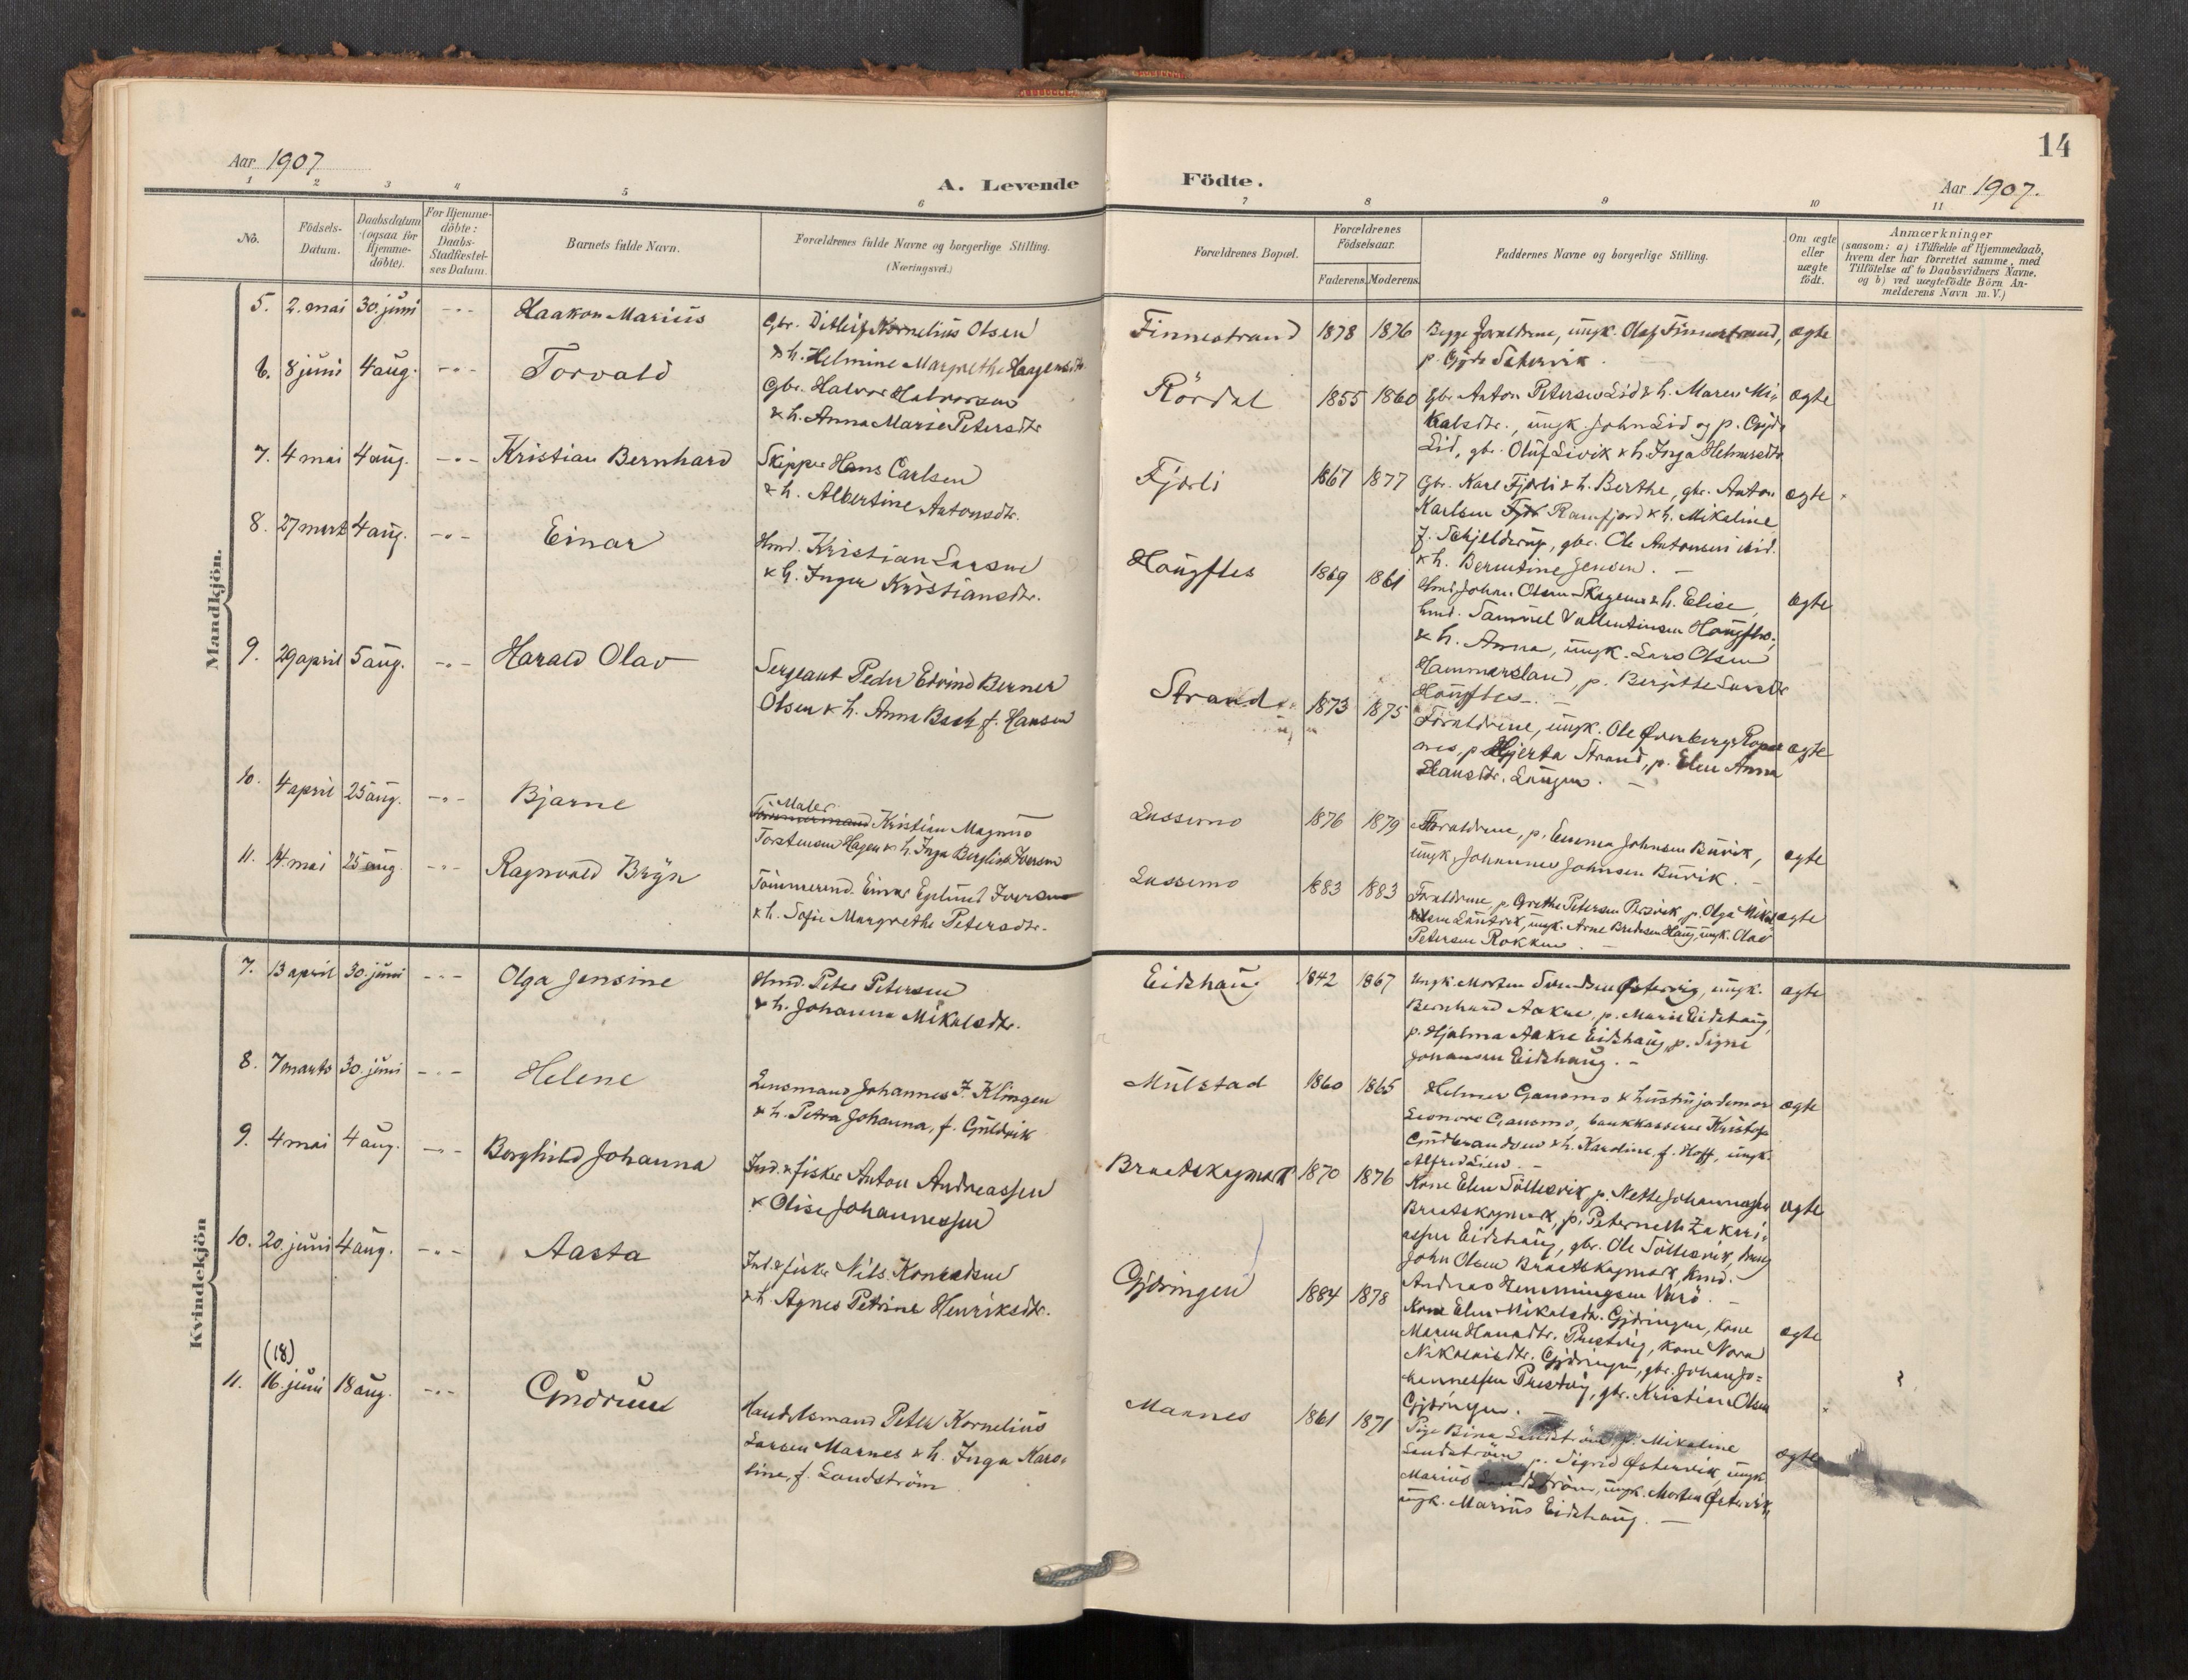 14
Aar 1907
A. Levende
Födte.
Aar 1907.
1 2 3 4 5 6 7 8 9 10 11
No.
Födsels-
Datum.
Daabsdatum
(ogsaa for
Hjemme-
döbte).
For Hjemme-
döbte:
Daabs-
Stadfæstel-
ses Datum.
Barnets fulde Navn.
Forældrenes fulde Navne og borgerlige Stilling.
(Næringsvei.)
Forældrenes Bopæl.
Forældrenes
Födselsaar.
Faderens. Moderens.
Faddernes Navne og borgerlige Stilling.
Om ægte
eller
uægte
födt.
Anmærkninger
(saasom: a) i Tilfælde af Hjemmedaab,
hvem der har forrettet samme, med
Tilföielse af to Daabsvidners Navne.
og b) ved uægtefödte Börn An-
melderens Navn m. V.)
Mandkjön.
5. 2. mai 30. juni -"- Haakon Marius
Gbr. Ditlef Kornelius Olsen
& h. Helmine Margrethe Hagensdtr.
Finnestrand 1878 1876
Begge forældrene, ungk. Olaf Finnestrand,
p. Gjøda Sætervik.
ægte
6. 8 juni 4 aug. -"- Torvald
Gbr. Halvor Halvorsen
& h. Anna Marie Petersdtr
Rördal 1855 1860
Gbr. Anton Petersen Lid & h. Maren Mi-
kalsdtr., ungk. John Lid og p.
Lid, gbr. Oluf Livik & h. Inga Helmersdtr
ægte
7. 4 mai 4 aug. -"- Kristian Bernhard
Skipper Hans Carlsen
& h. Albertine Antonsdtr.
Fjærli 1867 1877
Gbr. Karl Fjærli & h. Berthe, gbr. Anton
Karlsen Ramfjord & h. Mikaline
f. Schjelderup, gbr. Ole Antonsen ibid.
& h. Berntine Jensen.
ægte
8. 27 marts 4 aug. -"- Einar
Hmd. Kristian Larsen
& h. Inger Kristiansdtr.
Haugfles 1869 1861
Hmd. Johan Olsen Skagen & h. Elise,
hmd. Samuel Vallentinsen Haugfles,
& h. Anna, ungk. Lars Olsen
Hammersland, p. Bergitte Larsdtr
Haugfles.
ægte
9. 29 april 5 aug. -"- Harald Olav
Sergeant Peder Edvind Berner
Olsen & h. Anna Bach f. Hansen
Strand 1873 1875
Forældrene, ungk. Ole Øverberg
p. Hjerta Strand, p. Elen Anna
Hansdtr. Laugen.
ægte
10. 4 april 25 aug. -"- Bjarne
Maler
Tömmermand Kristian Magnus
Torstensen Hagen & h. Inga Bergliot Iversen
Lassemo 1876 1879
Forældrene, p. Emma Johnsen Burik,
ungk. Johannes Johnsen Burik.
ægte
11. 14. mai 25 aug. -"- Ragnvald Bryn
Tömmermd. Einar Egelund Iversen
& h. Sofie Margrethe Petersdtr.
Lassemo 1883 1883
Forældrene, p. Grethe Petersen p. Olga
ungk. Arne Bredesen Haug, ungk. Olav
Petersen Rokkun.
ægte
Kvindekjön
7. 13 april 30. juni -"- Olga Jensine
Hmd. Peter Petersen
& h. Johanna Mikalsdtr.
Eidshaug 1842 1867
Ungk. Morten Svendsen Østervig, ungk.
Bernhard Aakre, p. Marie Eidshaug,
p. Hjalma Aakre Eidshaug, p. Signe
Johansen Eidshaug.
ægte
8. 7 marts 30. juni -"- Helene
Lensmand Johannes F. Klingen
& h. Petra Johanna, f. Guldvik
Mulstad 1860 1865
Helmer Gansmo & hustru jordemor
Leonore Gansmo, bankkasserer Kristofer
Gudbrandsen & h. Karoline f. Hoff, ungk.
Alfred Lien.
ægte
9. 4 mai 4 aug. -"- Borghild Johanna
Ind. & fisker Anton Andreassen
& Olise Johannessen
Braatskogmark 1870 1876
Kone Elen Söllesvik, p. Nette Johannessen
Braatskogmark, p. Peternelle Zakari-
assen Eidshaug, gbr. Ole Söllesvik, hmd
John Olsen Braatskogmark, hmd.
Andreas Hemmingsen Værö.
ægte
10. 20. juni 4 aug. -"- Aasta
Ind. & fisker Nils Konradsen
& h. Agnes Petrine Henriksdtr.
Gjæringen 1884 1878
Kone Elen Mikalsdtr. Gjæringen, kone
Maren Hansdtr. Prestvig, kone Nora
Nikolaisdtr. Gjæringen, gbr. Johan Jo-
hannessen Prestvig, gbr. Kristian Olsen
Gjæringen.
ægte
11. (18) 16. juni 18 aug. -"- Gudrun
Handelsmand Peter Kornelius
Larsen Marnes & h. Inga Karo-
line, f. Sandström
Marnes 1861 1871
Pige Bina Sandström, p. Mikaline
Sandström, p. Sigrid Østervik, ungk.
Marius Sandström, ungk. Morten Østervik,
ungk. Marius Eidshaug.
ægte